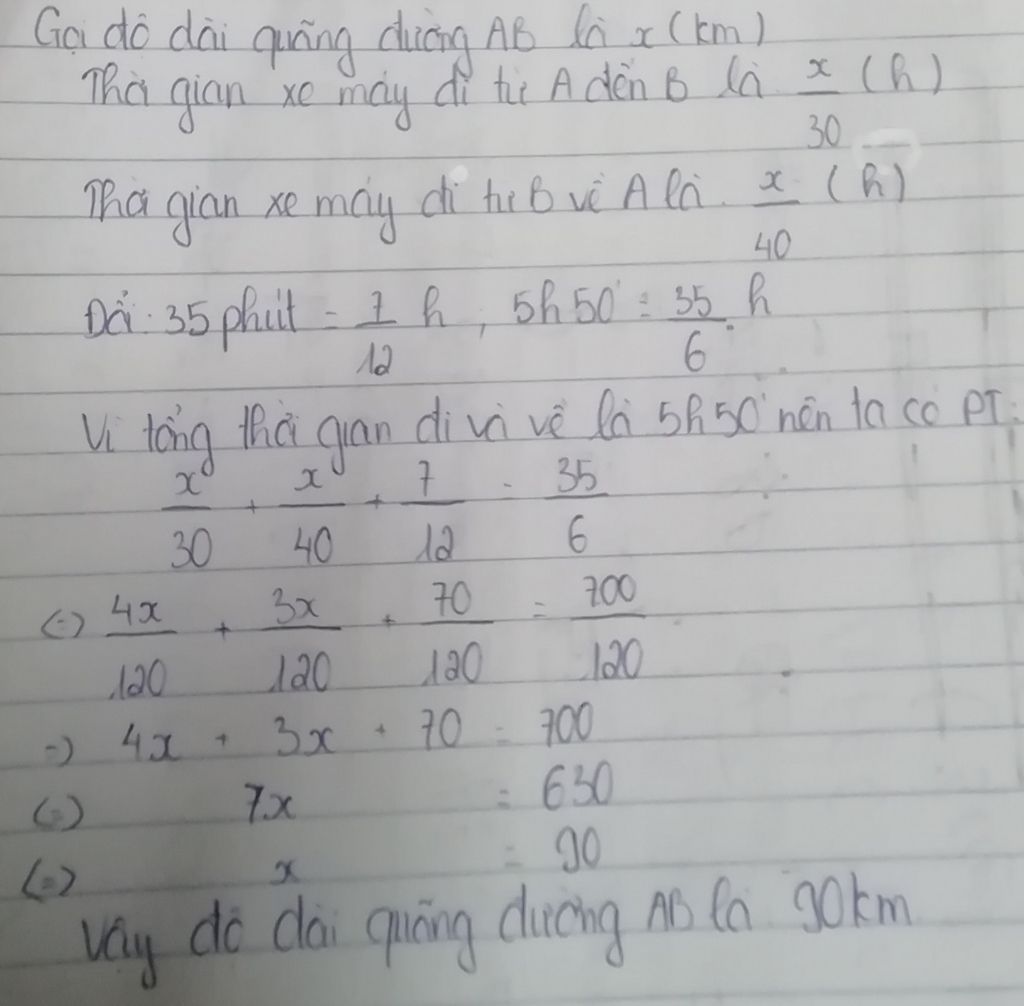 Gọi độ dài quãng đường AB là x (km)
Thời gian xe máy đi từ A đến B là x/30 (h)
Thời gian xe máy đi từ B về A là x/40 (h)
Đổi: 35 phút = 7/12 h, 5h50' = 35/6 h
Vì tổng thời gian đi và về là 5h50' nên ta có PT:
x/30 + x/40 + 7/12 = 35/6
(=) 4x/120 + 3x/120 + 70/120 = 700/120
=) 4x + 3x + 70 = 700
(=) 7x = 630
(=) x = 90
Vậy độ dài quãng đường AB là 90km